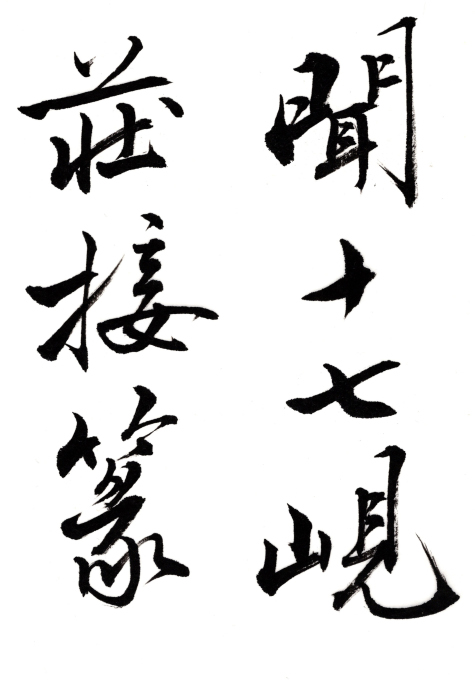 聞十七峴
莊接篆